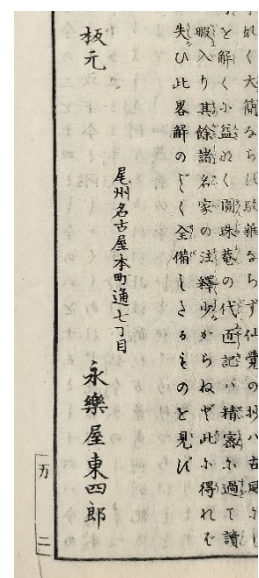 く大簡ならバ駁雜ならず仙覺の抄ハ古
と解くに益なく圓珠菴の代匠記ハ精密に過て讀
暇入り其餘諸名家の注釋少からねど此に得れバ
失ひ此畧解のごく全備したるものを見ず
板元
尾州名古屋本町通七丁目 永樂屋東四郎
万 二